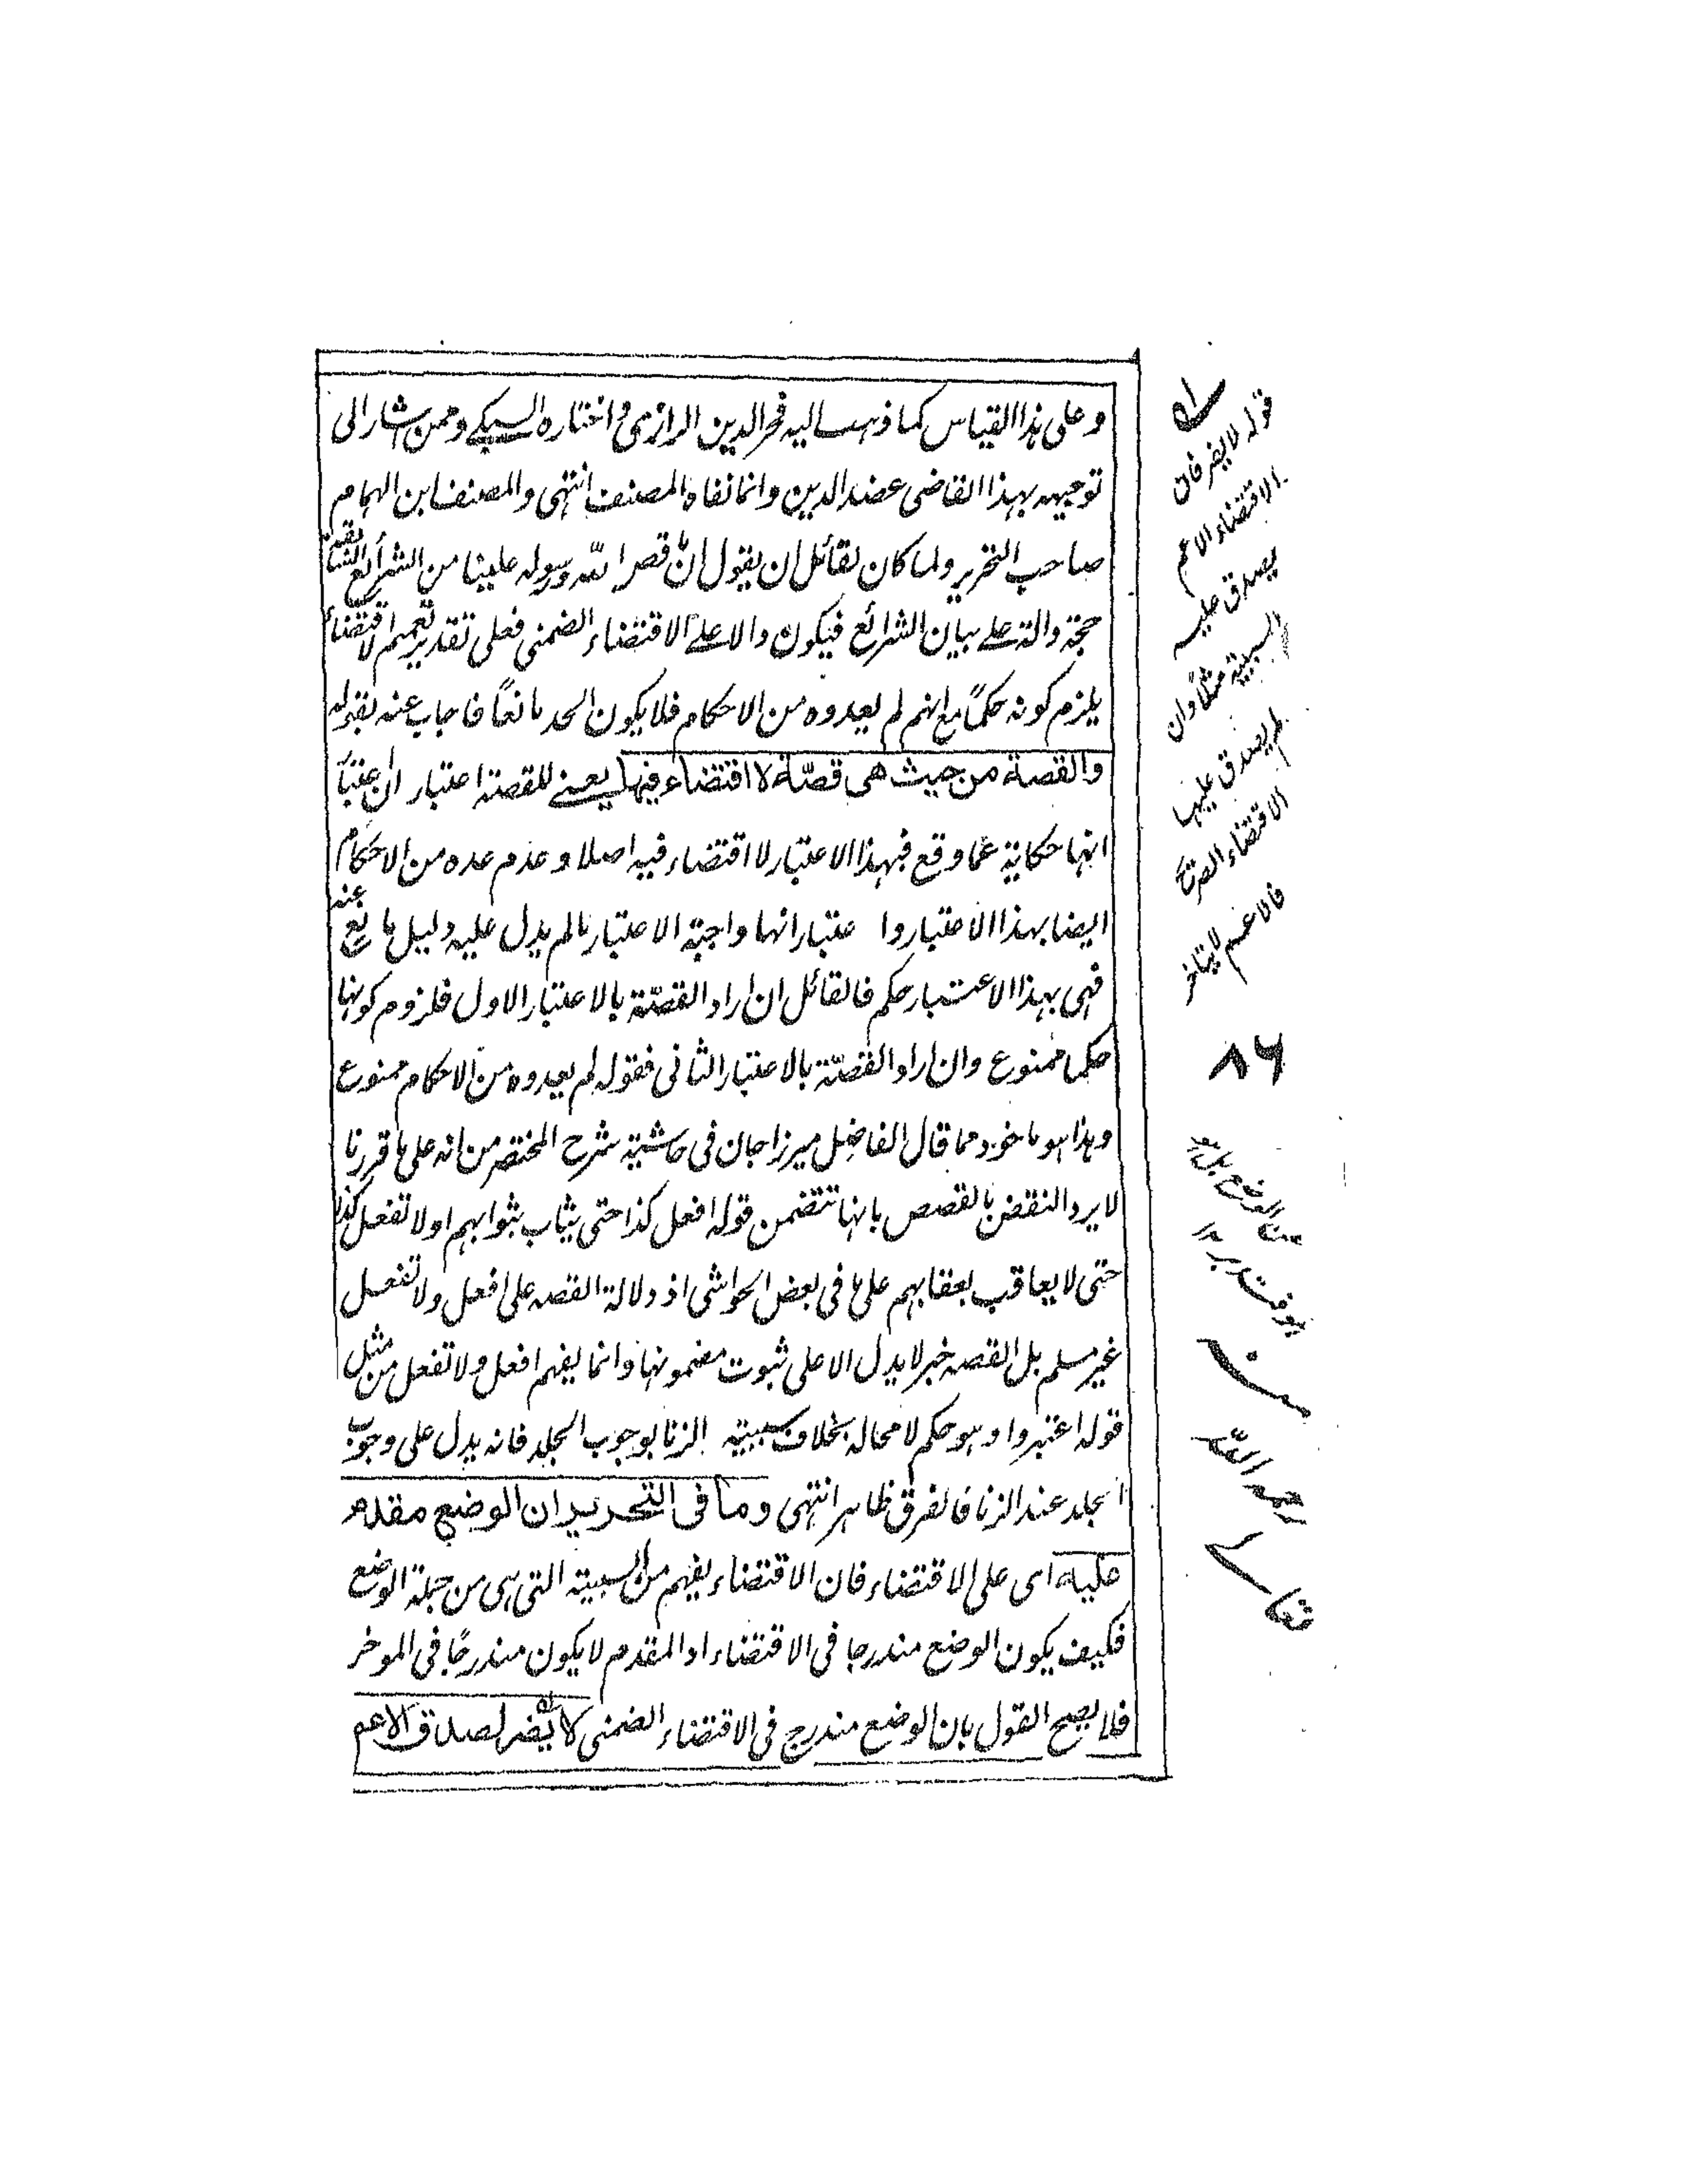 وعلى هذا القياس كما ذهب اليه فخر الدين الرازى واختاره السبكے وممن اشار الى
توجيهه بهذا القاضى عضد الدين وانما نفاه المصنف انتهى والمصنف ابن الهمام
صاحب التحرير ولما كان لقائل ان يقول ان قصر الله ورسوله علينا من الشرائع السابقة
حجة دالة علے بيان الشرائع فيكون دالا علے الاقتضاء الضمنى فعلى تقدير تعميم الاقتضاء
يلزم كونه حكمًا مع انهم لم يعدوه من الاحكام فلا يكون الحد مانعًا فاجاب عنه بقوله
والقصة من حيث هى قصّة لا اقتضاء فيها يعنے للقصة اعتبار ان اعتبار
انها حكاية عما وقع فبهذا الاعتبار لا اقتضاء فيه اصلا وعدم عده من الاحكام
ايضا بهذا الاعتبار وا عتبار انها واجبة الاعتبار مالم يدل عليه دليل مانع عنه
فهى بهذا الاعتبار حكم فالقائل ان اراد القصّة بالاعتبار الاول فلزوم كونها
حكما ممنوع وان اراد القصّة بالاعتبار الثانى فقوله لم يعدوه من الاحكام ممنوع
وهذا هو ماخوذ مما قال الفاضل ميرزا جان فى حاشية شرح المختصر من انه على ما قررنا
لا يرد النقض بالقصص بانها تتضمن قوله افعل كذا حتى يثاب بثوابهم او لا تفعل كذا
حتى لا يعاقب بعقابهم على ما فى بعض الحواشى اذ دلالة القصه على افعل ولا تفعل
غير مسلم بل القصه خبر لا يدل الا على ثبوت مضمونها وانما يفهم افعل ولا تفعل من مثل
قوله اعتبروا وهو حكم لا محالة بخلاف سببية الزنا بوجوب الجلد فانه يدل على وجوب
الجلد عند الزنا فالفرق ظاهر انتهى وما فى التحرير ان الوضع مقدم
عليه اى على الاقتضاء فان الاقتضاء يفهم من السببية التى هى من جملة الوضع
فكيف يكون الوضع مندرجا فى الاقتضاء اذ المقدم لا يكون مندرجًا فى الموخر
فلا يصح القول بان الوضع مندرج فى الاقتضاء الضمنى لا يضر لصدق الاعم
قوله لا يضر فان
الاقتضاء الاعم
يصدق عليه
السببية مثلا وان
لم يصدق عليها
الاقتضاء الصريح
فالاعم لا يتاخر
٨٦